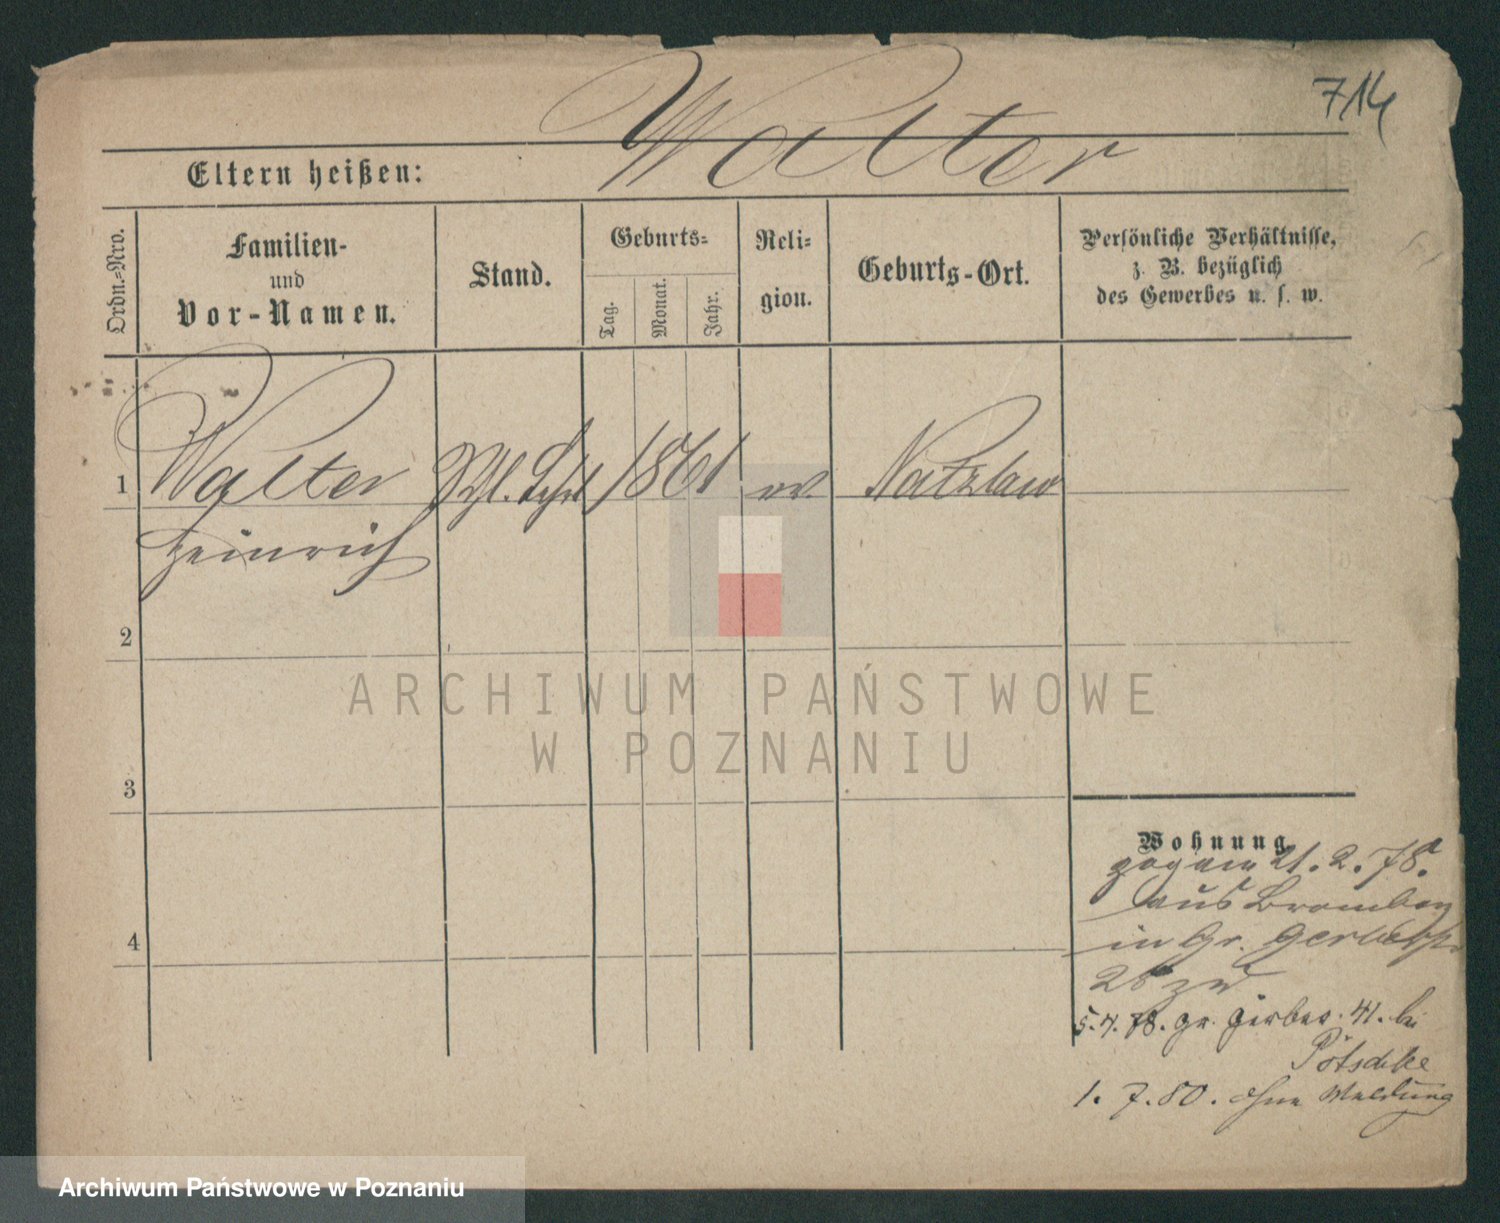 714
Walter
Eltern heißen:
Ordn.=Nro.
Familien-
und
Vor-Namen.
Stand.
Geburts=
Tag.
Monat.
Jahr.
Reli=
gion.
Geburts-Ort.
Persönliche Verhältnisse,
z. B. bezüglich
des Gewerbes u. s. w.
1 Walter 1861 ev Natzlaw
Heinrich
2
3
4
Wohnung
zog am 21. 2. 78.
aus Bromberg
in Gr. Gerberstr
28 zu
5. 4. 78. Gr. Gerber. 41. bei
Pötschke
1. 7. 80. ohne Meldung
ARCHIWUM PAŃSTWOWE
W POZNANIU
Archiwum Państwowe w Poznaniu